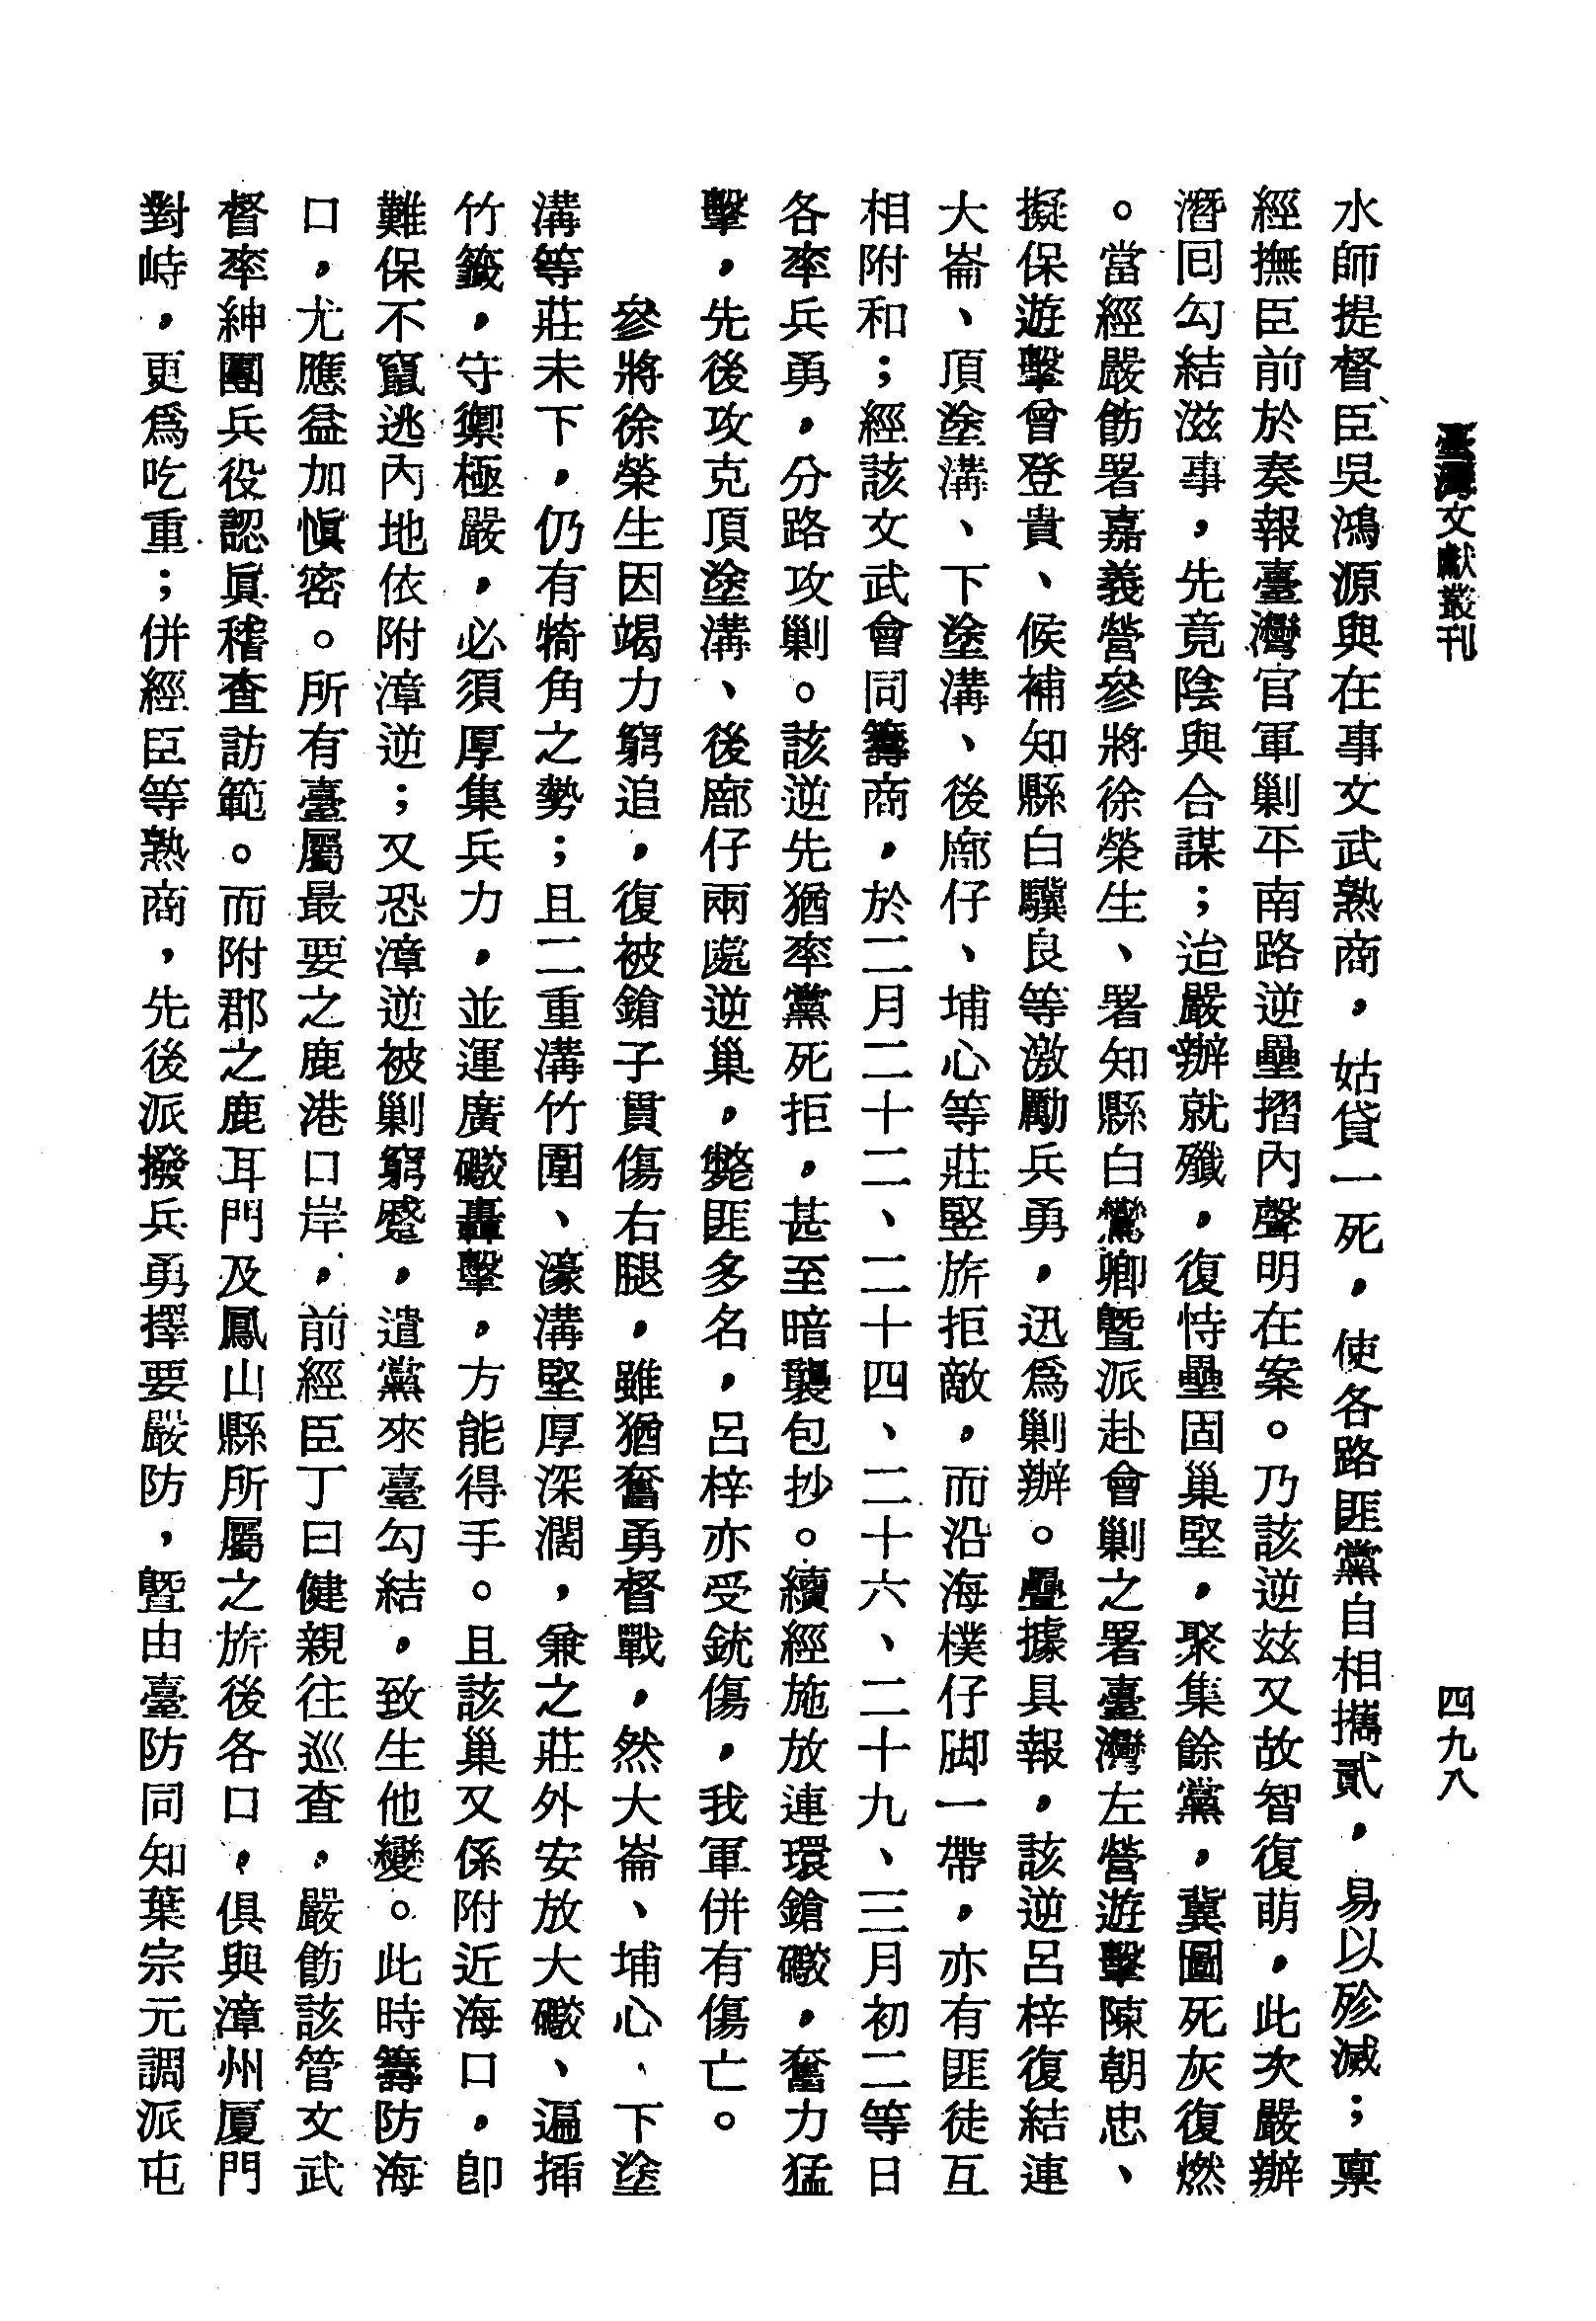 臺灣文獻叢刊
四九八
水師提督臣吳鴻源與在事文武熟商，姑貸一死，使各路匪黨自相攜貳，易以殄滅；稟
經撫臣前於奏報臺灣官軍剿平南路逆壘摺內聲明在案。乃該逆茲又故智復萌，此次嚴辦
潛囘勾結滋事，先竟陰與合謀；迨嚴辦就殲，復恃壘固巢堅，聚集餘黨，冀圖死灰復燃
。當經嚴飭署嘉義營參將徐榮生、署知縣白鸞卿曁派赴會剿之署臺灣左營遊擊陳朝忠、
擬保遊擊曾登貴、候補知縣白驥良等激勵兵勇，迅爲剿辦。疊據具報，該逆呂梓復結連
大崙、頂塗溝、下塗溝、後廍仔、埔心等莊堅旂拒敵，而沿海樸仔脚一帶，亦有匪徒互
相附和；經該文武會同籌商，於二月二十二、二十四、二十六、二十九、三月初二等日
各率兵勇，分路攻剿。該逆先猶率黨死拒，甚至暗襲包抄。續經施放連環鎗礮，奮力猛
擊，先後攻克頂塗溝、後廍仔兩處逆巢，斃匪多名，呂梓亦受銃傷，我軍併有傷亡。
參將徐榮生因竭力窮追，復被鎗子貫傷右腿，雖猶奮勇督戰，然大崙、埔心、下塗
溝等莊未下，仍有犄角之勢；且二重溝竹圍、濠溝堅厚深濶，兼之莊外安放大礮、遍插
竹籤，守禦極嚴，必須厚集兵力，並運廣礮轟擊，方能得手。且該巢又係附近海口，卽
難保不竄逃內地依附漳逆；又恐漳逆被剿窮蹙，遣黨來臺勾結，致生他變。此時籌防海
口，尤應益加愼密。所有臺屬最要之鹿港口岸，前經臣丁曰健親往巡查，嚴飭該管文武
督率紳團兵役認眞稽查訪範。而附郡之鹿耳門及鳳山縣所屬之旂後各口，俱與漳州厦門
對峙，更爲吃重；併經臣等熟商，先後派撥兵勇擇要嚴防，曁由臺防同知葉宗元調派屯